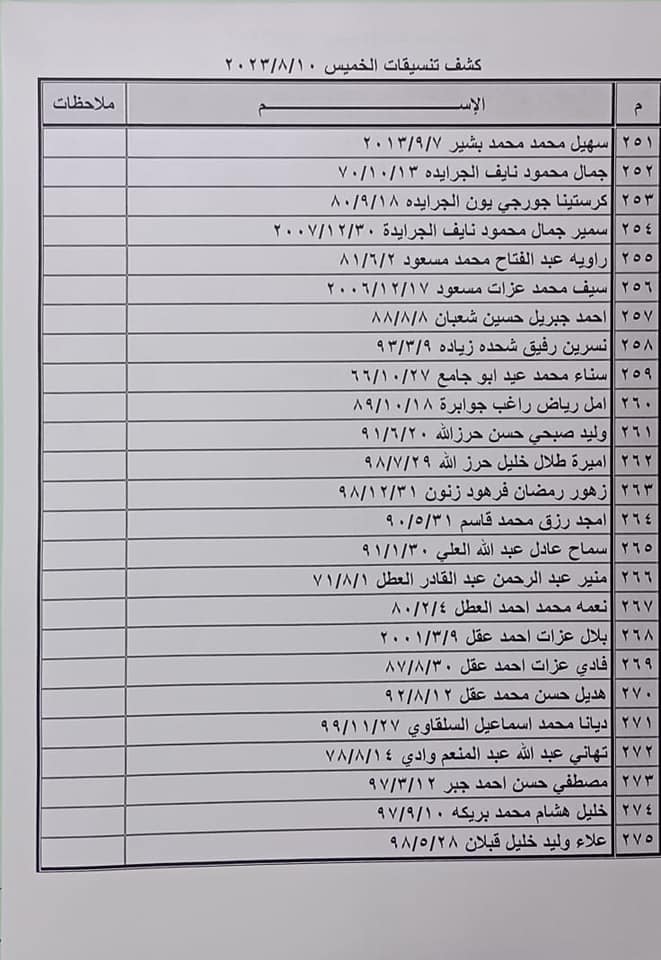 كشف تنسيقات الخميس ٢٠٢٣/٨/١٠
م الإســــــــــــم ملاحظات
٢٥١ سهيل محمد محمد بشير ٢٠١٣/٩/٧
٢٥٢ جمال محمود نايف الجرايده ٧٠/١٠/١٣
٢٥٣ كرستينا جورجي يون الجرايده ٨٠/٩/١٨
٢٥٤ سمير جمال محمود نايف الجرايدة ٢٠٠٧/١٢/٣٠
٢٥٥ راويه عبد الفتاح محمد مسعود ٨١/٦/٢
٢٥٦ سيف محمد عزات مسعود ٢٠٠٦/١٢/١٧
٢٥٧ احمد جبريل حسين شعبان ٨٨/٨/٨
٢٥٨ نسرين رفيق شحده زياده ٩٣/٣/٩
٢٥٩ سناء محمد عيد ابو جامع ٦٦/١٠/٢٧
٢٦٠ امل رياض راغب جوابرة ٨٩/١٠/١٨
٢٦١ وليد صبحي حسن حرزالله ٩١/٦/٢٠
٢٦٢ اميرة طلال خليل حرز الله ٩٨/٧/٢٩
٢٦٣ زهور رمضان فرهود زنون ٩٨/١٢/٣١
٢٦٤ امجد رزق محمد قاسم ٩٠/٥/٣١
٢٦٥ سماح عادل عبد الله العلي ٩١/١/٣٠
٢٦٦ منير عبد الرحمن عبد القادر العطل ٧١/٨/١
٢٦٧ نعمه محمد احمد العطل ٨٠/٢/٤
٢٦٨ بلال عزات احمد عقل ٢٠٠١/٣/٩
٢٦٩ فادي عزات احمد عقل ٨٧/٨/٣٠
٢٧٠ هديل حسن محمد عقل ٩٢/٨/١٢
٢٧١ ديانا محمد اسماعيل السلقاوي ٩٩/١١/٢٧
٢٧٢ تهاني عبد الله عبد المنعم وادي ٧٨/٨/١٤
٢٧٣ مصطفي حسن احمد جبر ٩٧/٣/١٢
٢٧٤ خليل هشام محمد بريكه ٩٧/٩/١٠
٢٧٥ علاء وليد خليل قبلان ٩٨/٥/٢٨